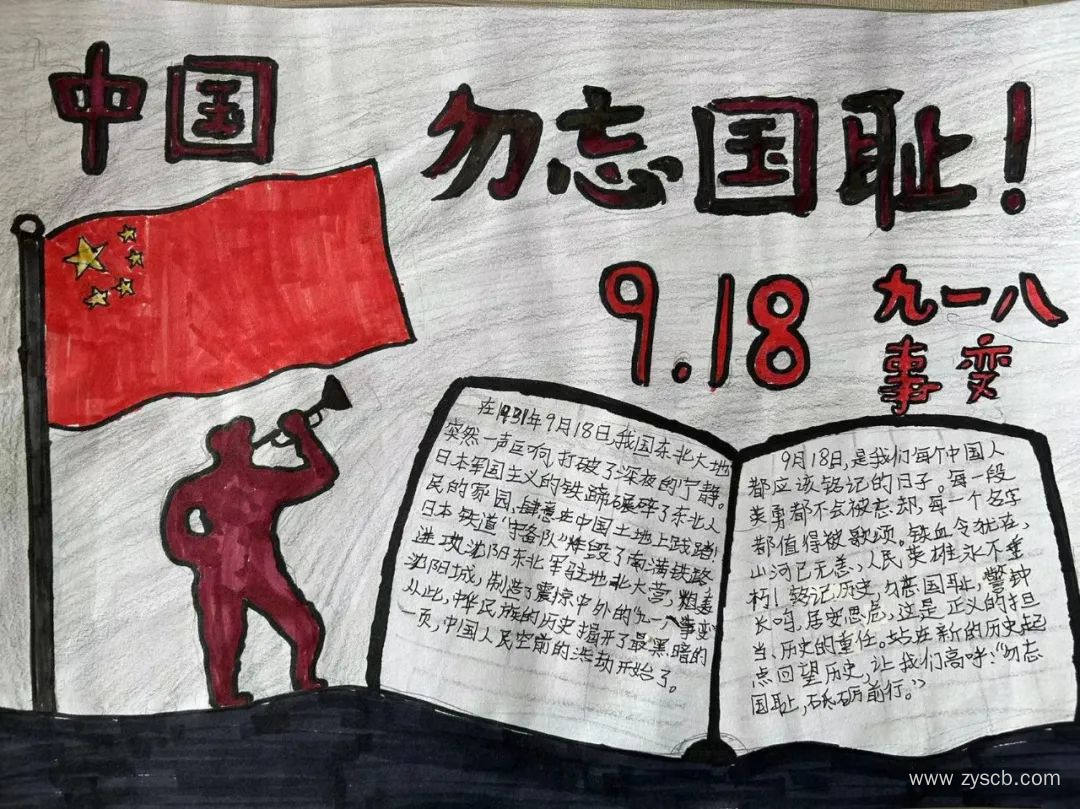 中国
勿忘国耻！
9.18
九一八
事变
在1931年9月18日,我国东北大地
突然一声巨响,打破了深夜的宁静。
日本军国主义的铁蹄碾碎了东北人
民的家园,肆意在中国土地上践踏!
日本铁道“守备队”炸毁了南满铁路
进攻沈阳东北军驻地北大营,
沈阳城,制造了震惊中外的“九一八事变
从此,中华民族的历史揭开了最黑暗的
一页,中国人民空前的浩劫开始了。
9月18日,是我们每个中国人
都应该铭记的日子。每一段
英勇都不会被忘却,每一个名字
都值得被歌颂。铁血今犹在,
山河已无恙,人民英雄永不垂
朽!铭记历史,勿忘国耻,警钟
长鸣,居安思危,这是正义的担
当、历史的重任。站在新的历史起
点回望历史,让我们高呼:“勿忘
国耻,砥砺前行。”
www.zyscb.com